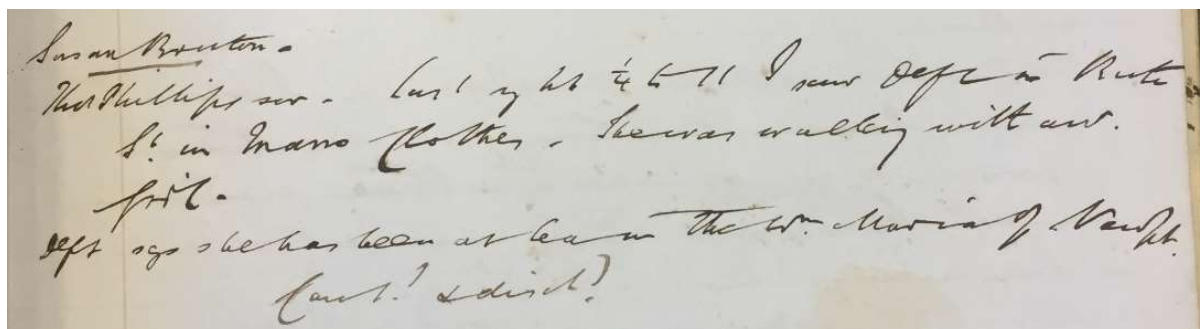 Susan Bruton -
Thos Phillips sw - Last night ¼ to 11 I saw Deft in Bute
St in Mans Clothes. She was walking with anr.
Girl -
Deft sys she has been at sea in the Wm. Maria of Newpt.
Caut.d & disch.d